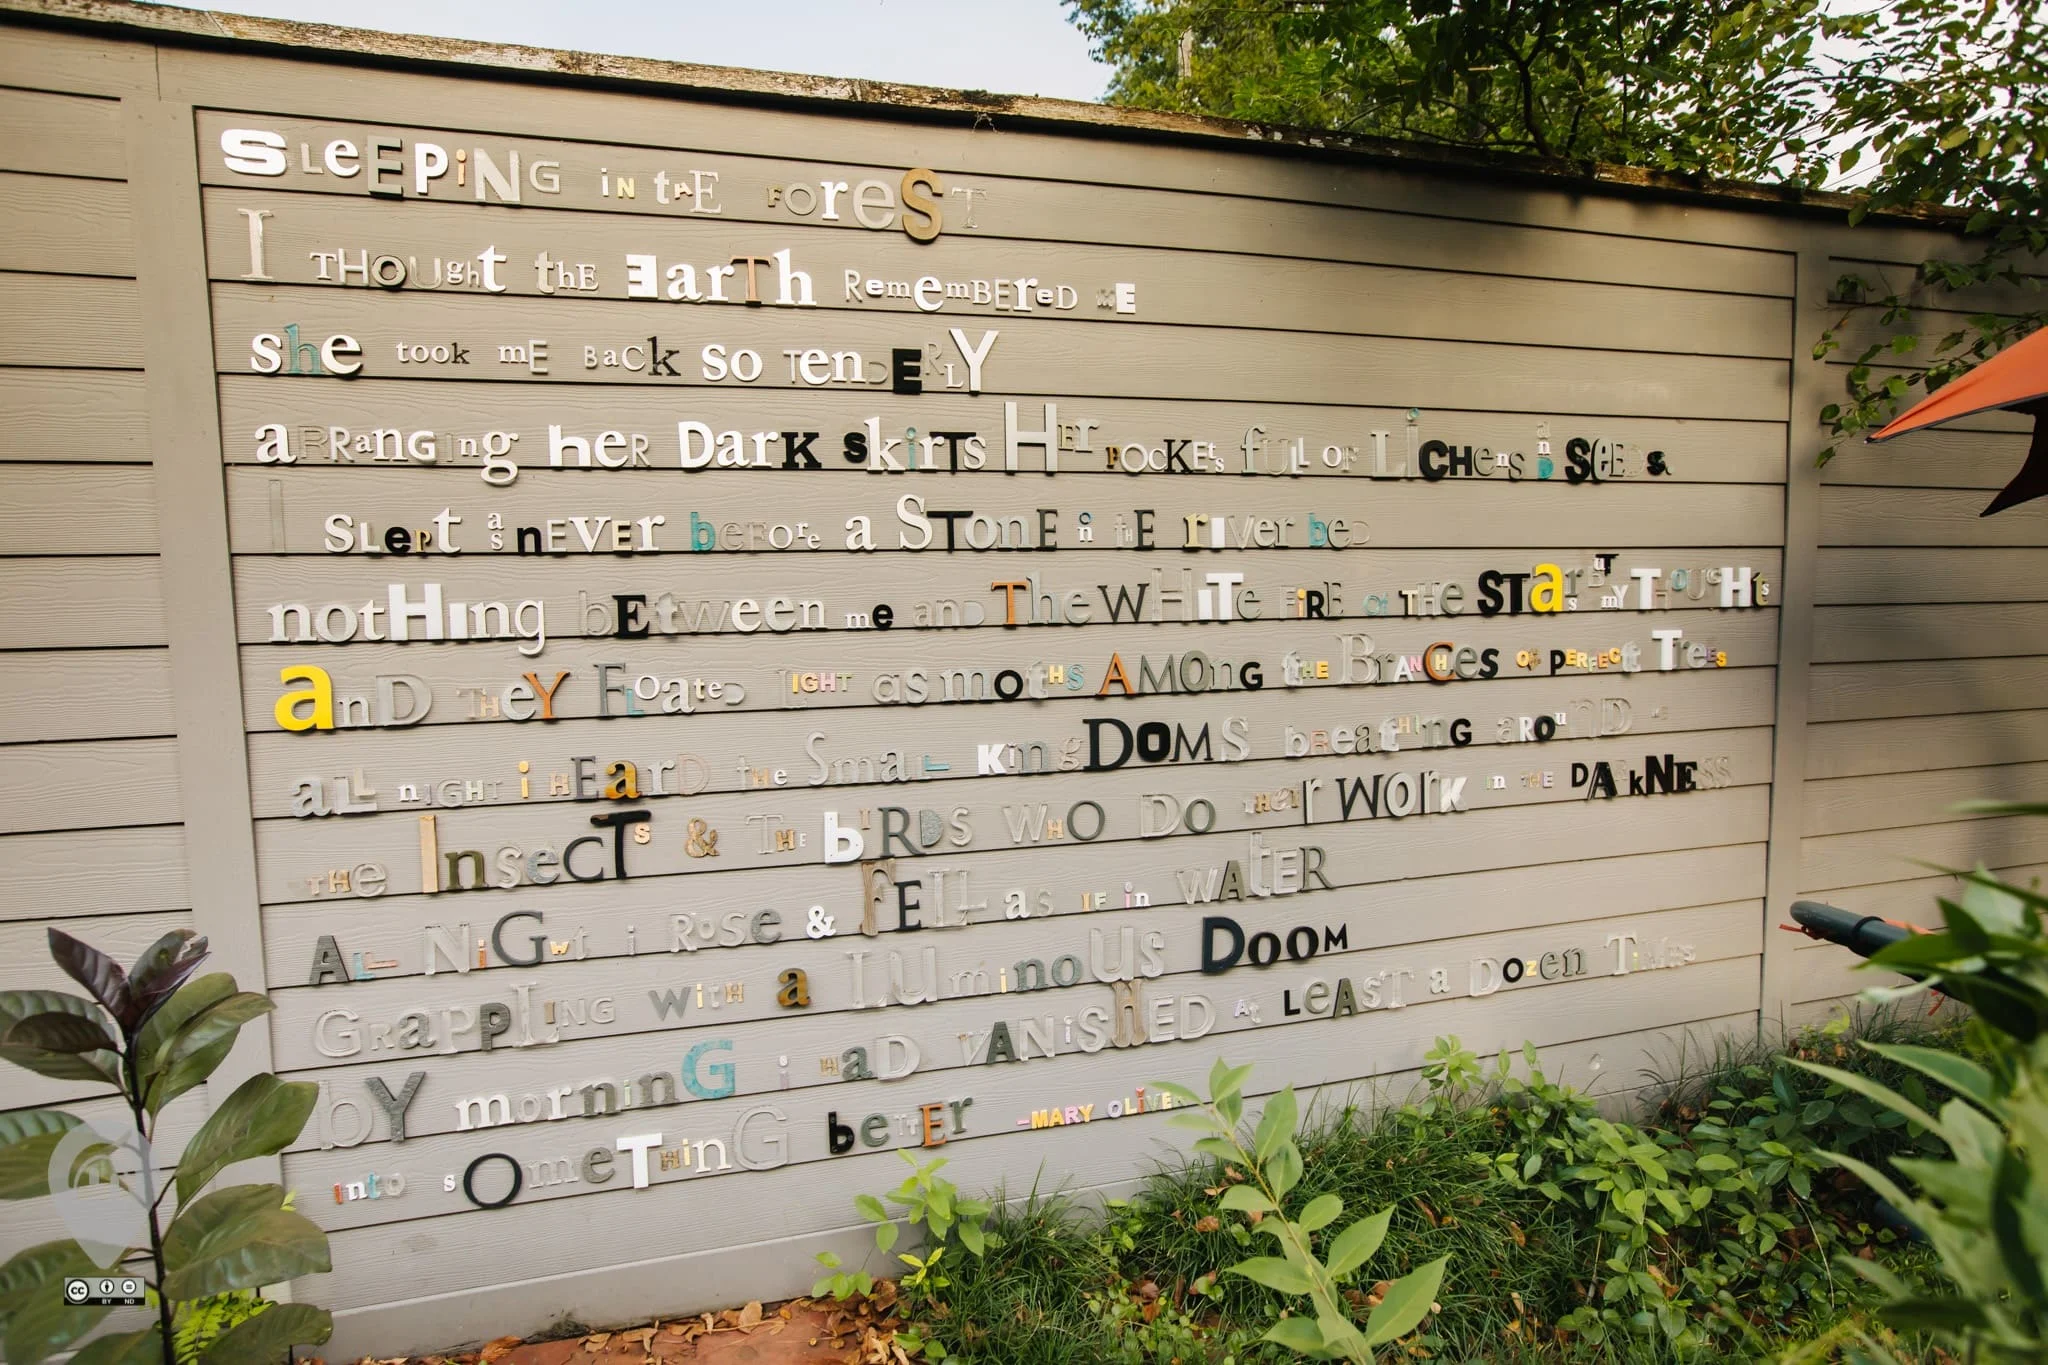 SLeEPiNG iN thE FOreST
I THOUght thE EarTh RemembEReD mE
she took mE BacK so TenDERLY
aRRanGIng heR DarK skirTs HEr POCKEts fuLL OF LiCHens anD SeeDs.
I sLept as nEVEr beFOre a STonE in thE riVer beD
notHIng bEtween me anD The WHiTe FiRE OF THE STars buT mY THOUGHts
anD THeY FLOateD LIGHT as moths AMOnG thE BrANCHes OF PERFECt TreEs
aLL nIGHT i HEarD the SmaLL KingDOMS bREatHinG aROunD me
THe InsecTs & THe bIRDS WHO Do THeir WORK in THE DARkNESS
ALL NiGht i ROSe & FELL as IF in WAtER
GRaPPLING WitH a LUminoUs DooM
bY morninG i HaD VANiSHED At LeAsT a Dozen TiMes
into sOmeTHinG beTTEr -MARY OLIVER